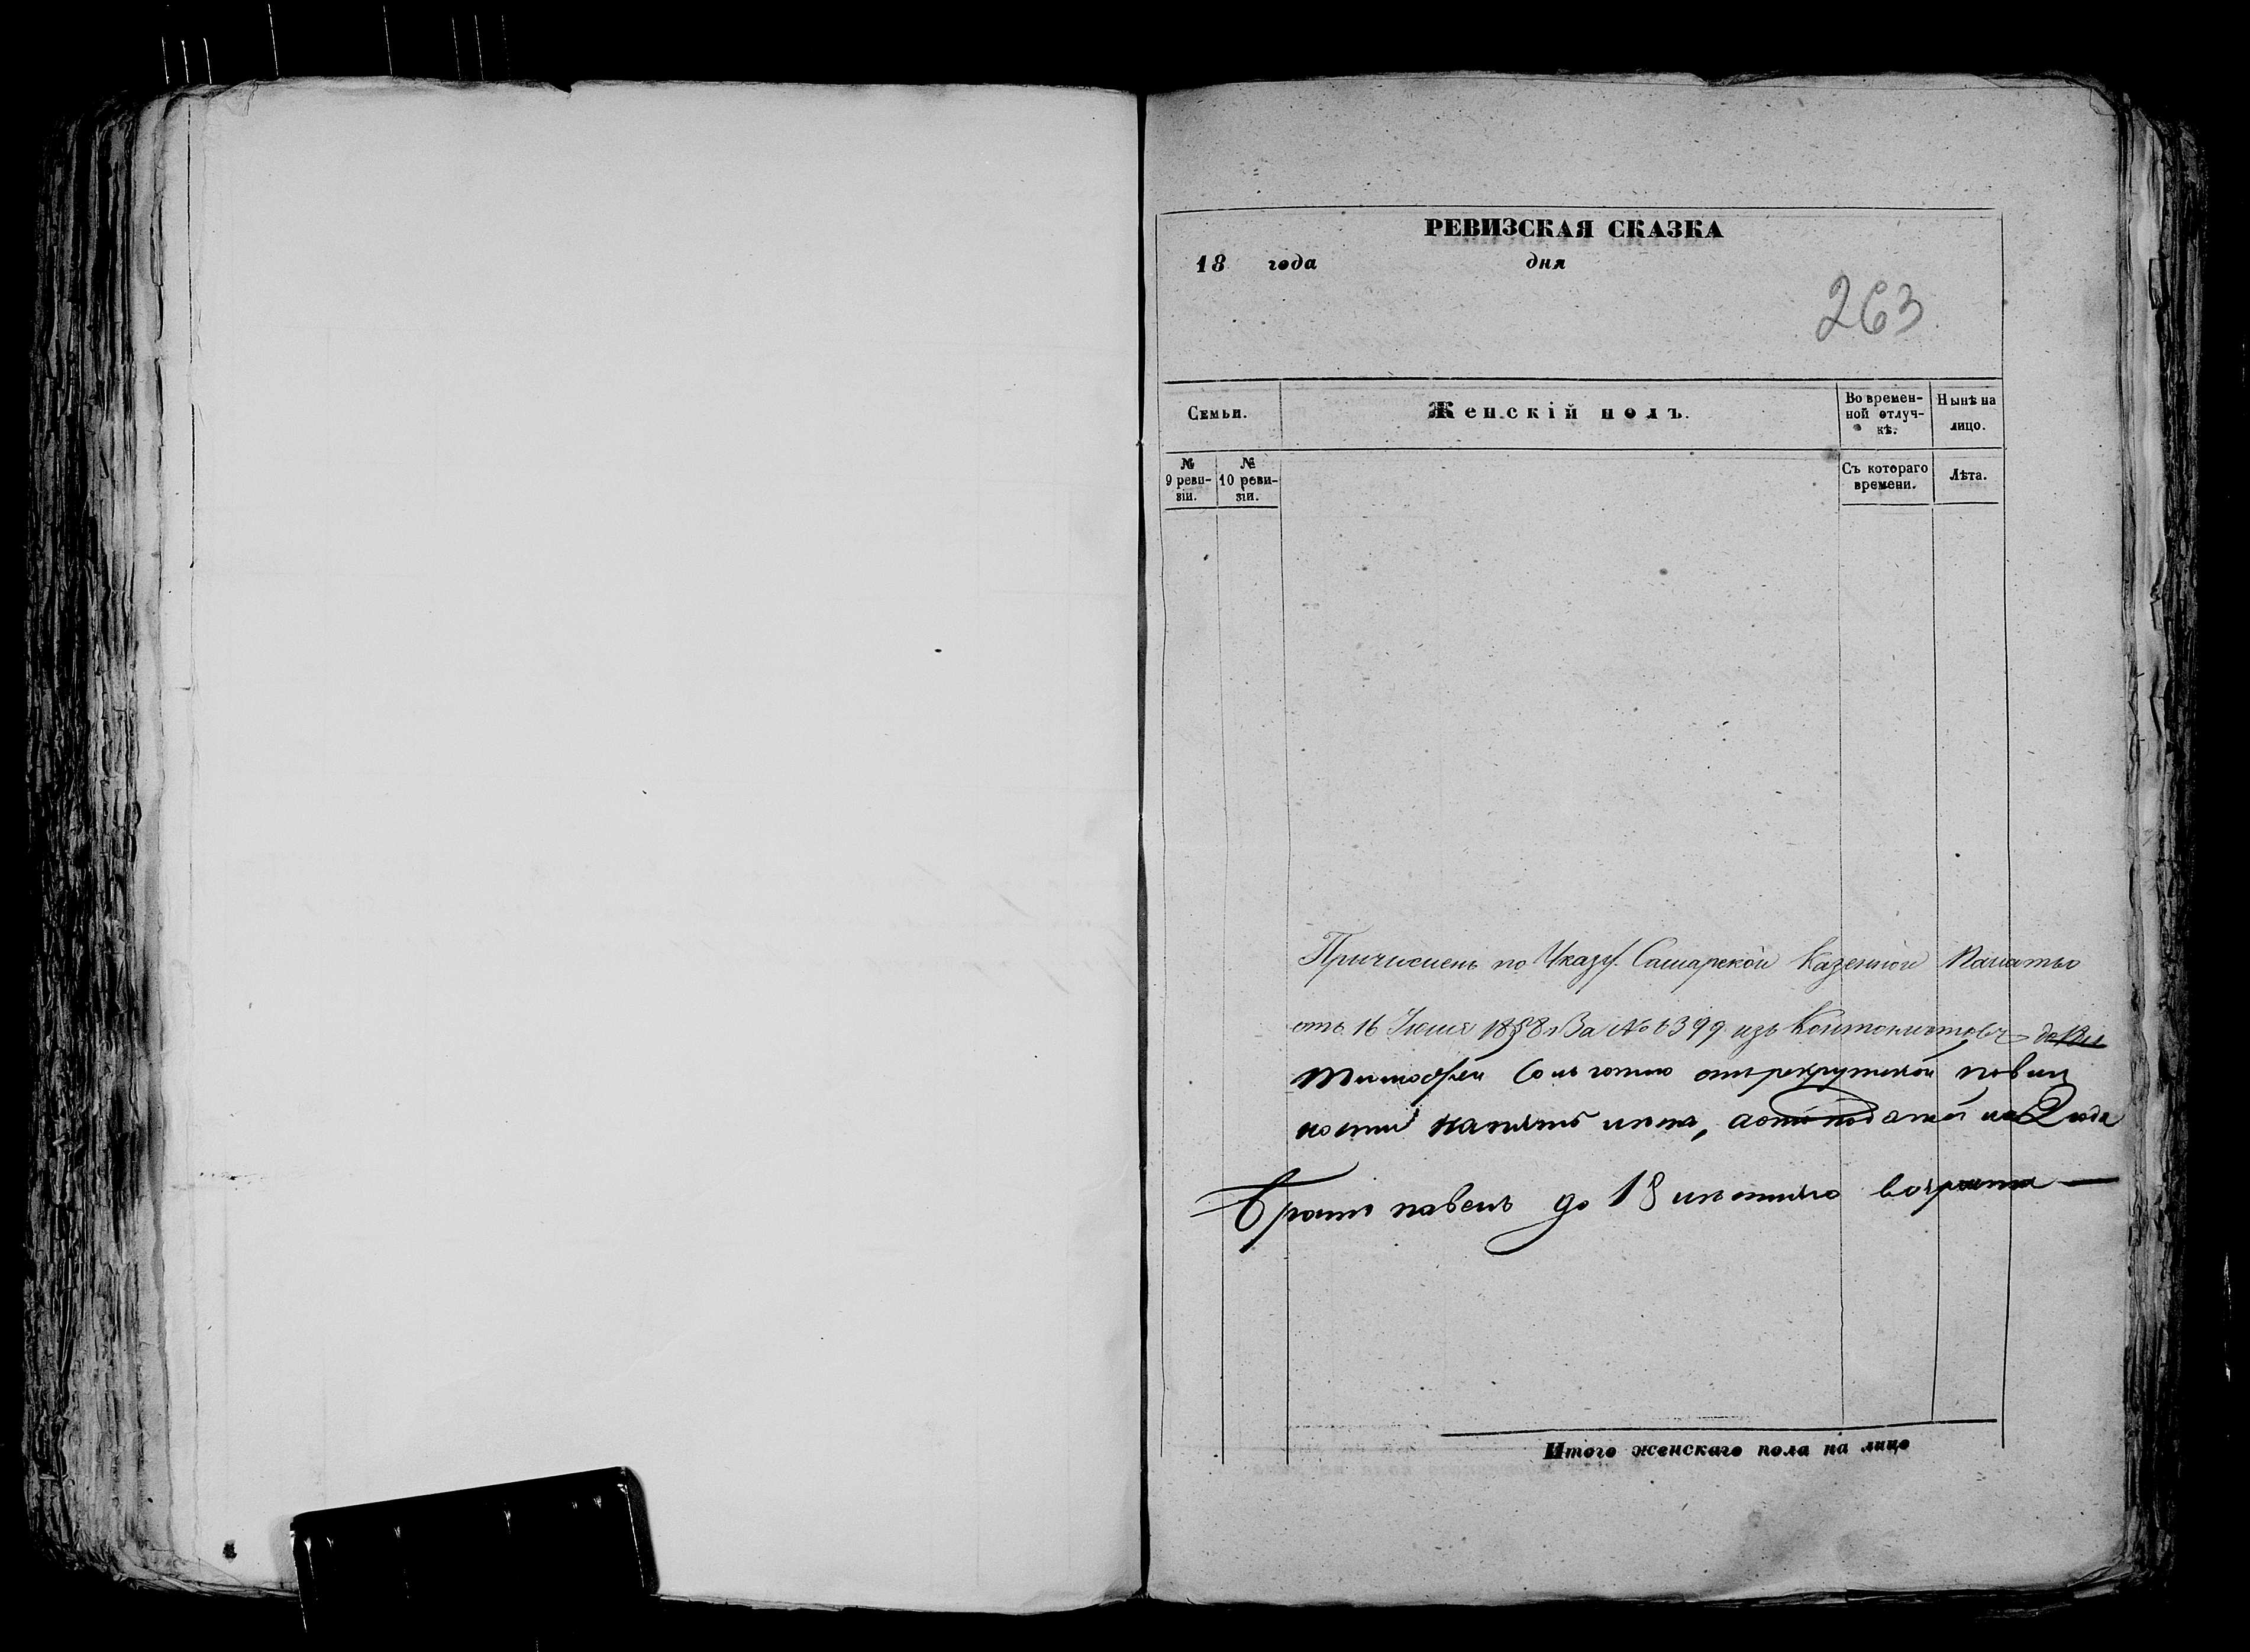 РЕВИЗСКАЯ СКАЗКА
18 года дня
263
Семьи.
Женскій полъ.
Во времен-
ной отлуч-
кѣ.
Нынѣ на
лицо.
№
9 реви-
зіи.
№
10 реви-
зіи.
Съ котораго
времени.
Лѣта.
Причисленъ по Указу Самарской Казенной Палаты
отъ 16 1858 За № 6399 изъ Кантонистовъ
Тимофей Сольготою отъ рекрутской повин
ности
Братъ павелъ до 18 лѣтняго возраста
Итого женскаго пола на лицо